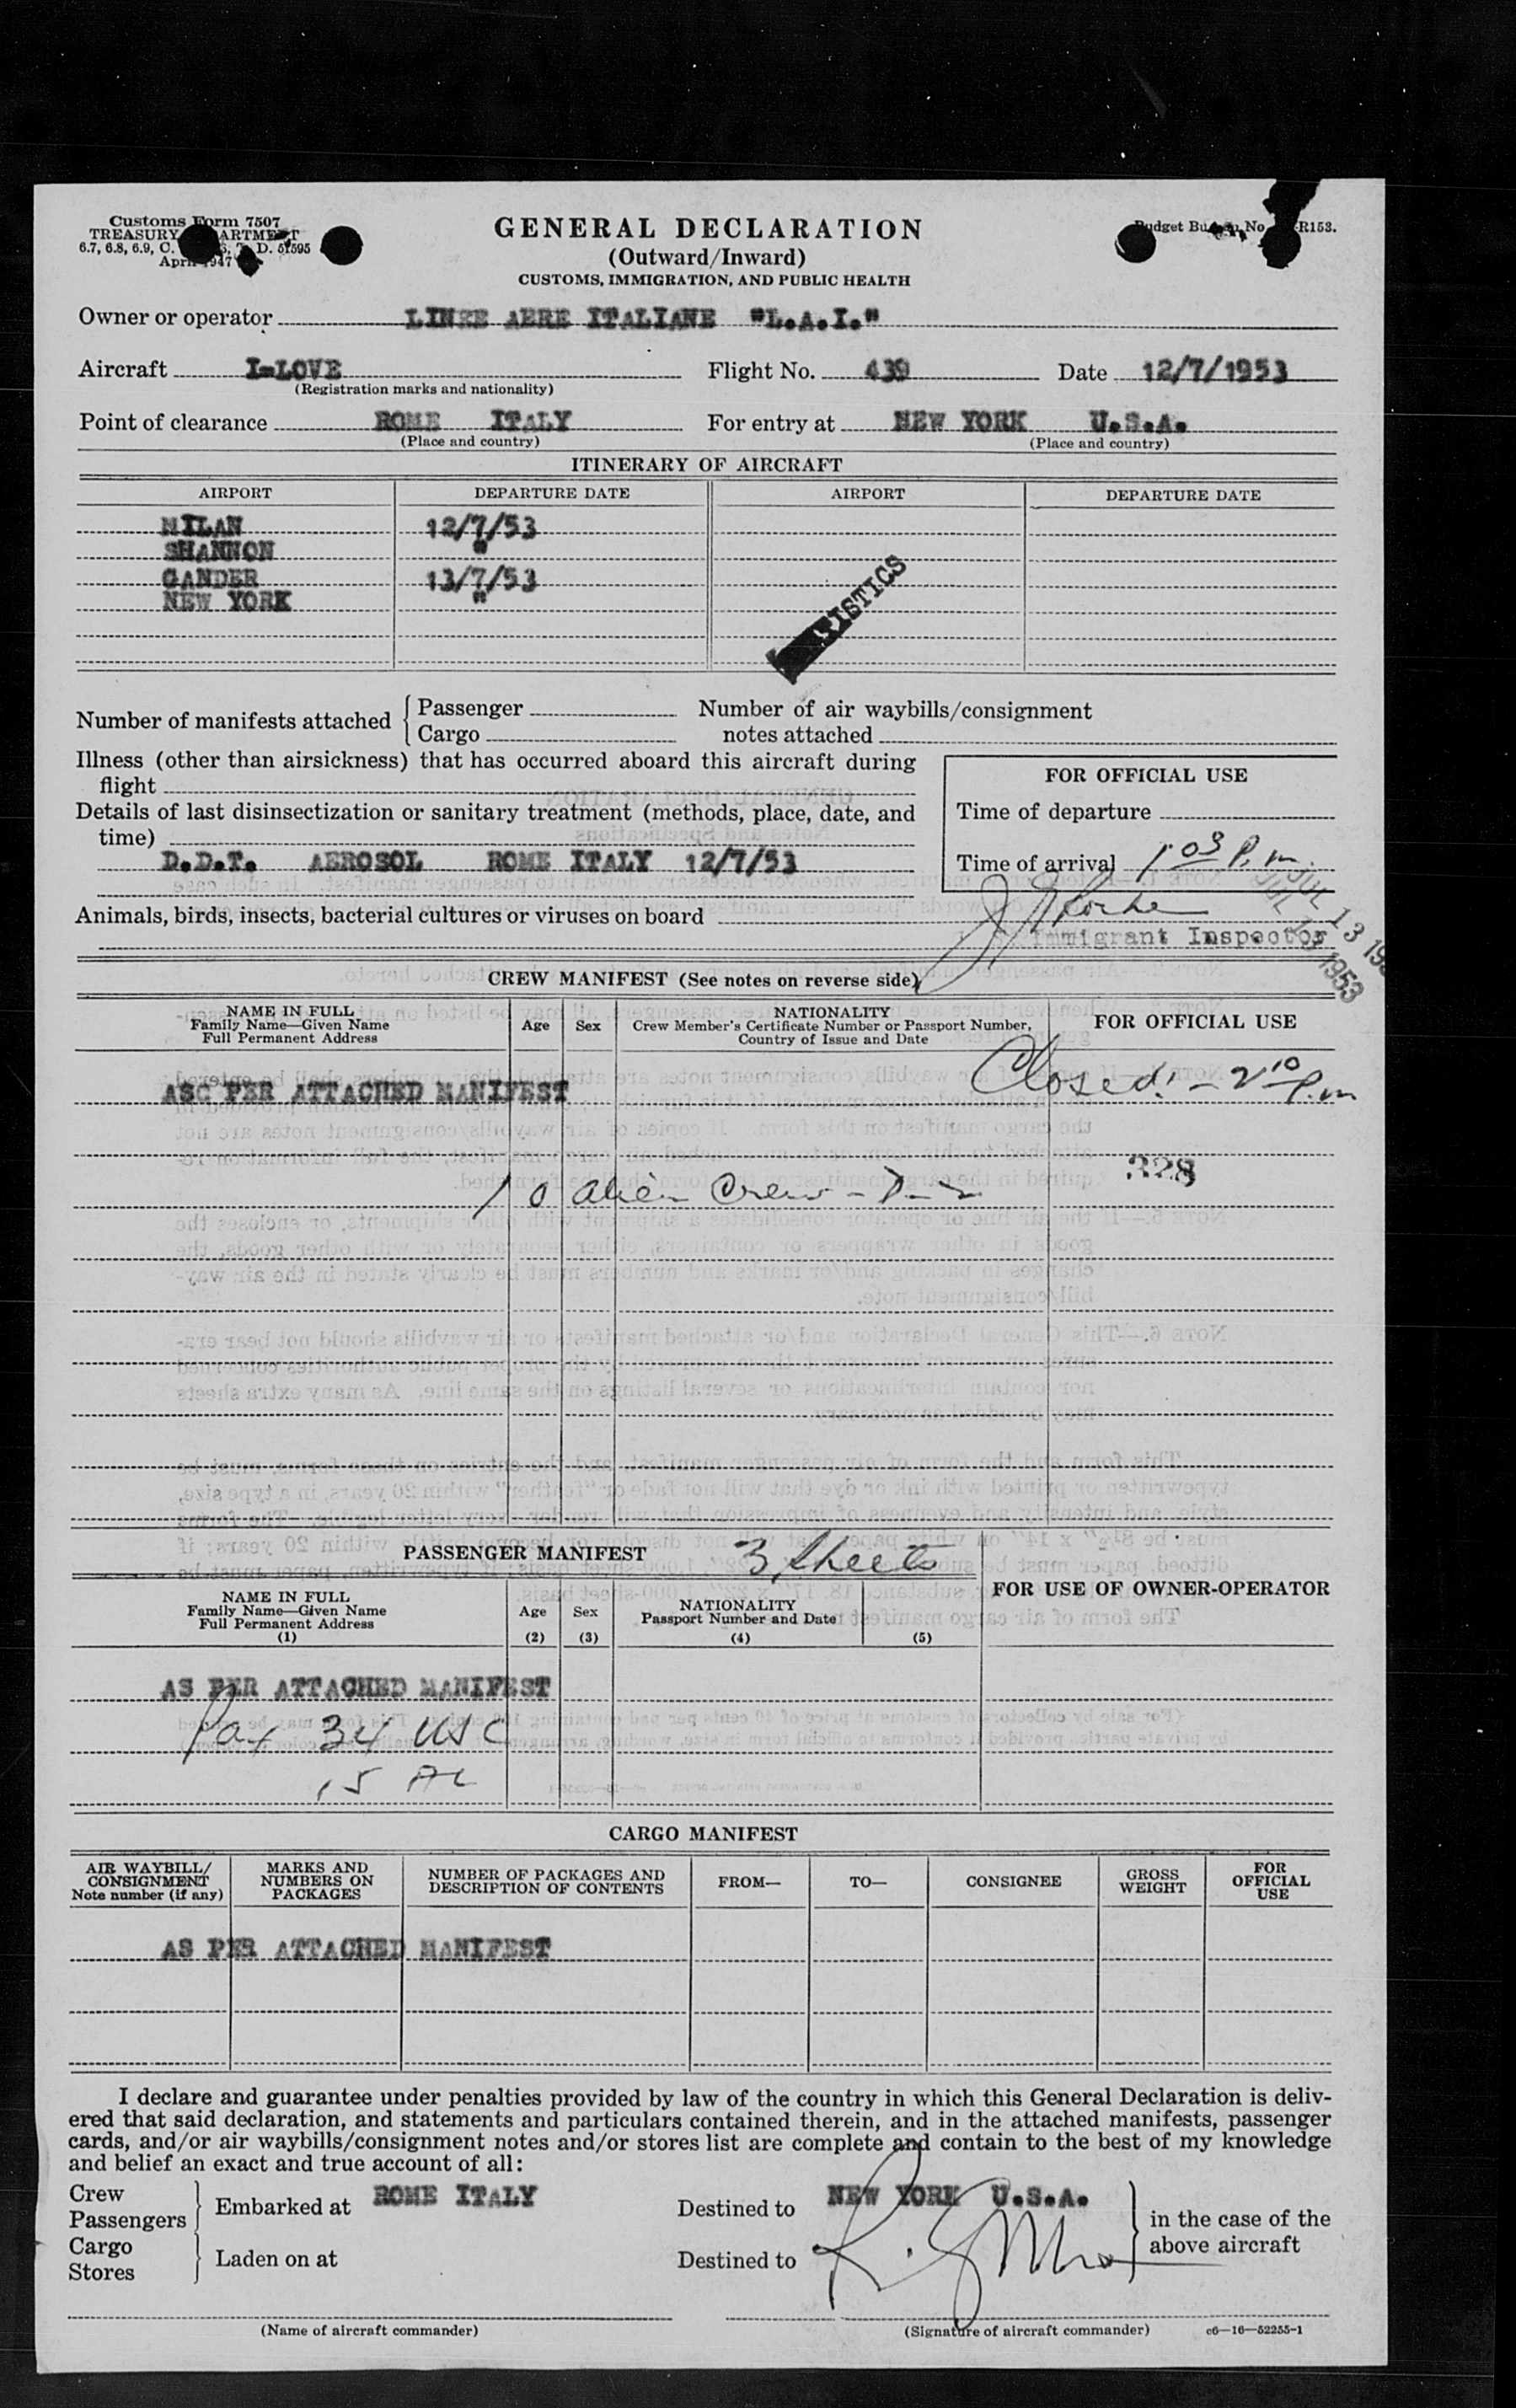 Customs Form 7507
TREASURY DEPARTMENT
6.7, 6.8, 6.9, C. D. 51595
April 1947
GENERAL DECLARATION
(Outward/Inward)
CUSTOMS, IMMIGRATION, AND PUBLIC HEALTH
Budget Bureau No R153.
Owner or operator LINEE AERE ITALIANE "L.A.I."
Aircraft I-LOVE Flight No. 439 Date 12/7/1953
(Registration marks and nationality)
Point of clearance ROME ITALY For entry at NEW YORK U.S.A.
(Place and country) (Place and country)
ITINERARY OF AIRCRAFT
AIRPORT DEPARTURE DATE AIRPORT DEPARTURE DATE
MILAN 12/7/53
SHANNON "
GANDER 13/7/53
NEW YORK "
STATISTICS
Number of manifests attached { Passenger
Cargo
Number of air waybills/consignment
notes attached
Illness (other than airsickness) that has occurred aboard this aircraft during
flight
Details of last disinsectization or sanitary treatment (methods, place, date, and
time)
D.D.T. AEROSOL ROME ITALY 12/7/53
FOR OFFICIAL USE
Time of departure
Time of arrival 1 03 P.m.
Animals, birds, insects, bacterial cultures or viruses on board
Immigrant Inspector
JUL 13 1953
CREW MANIFEST (See notes on reverse side)
NAME IN FULL
Family Name—Given Name
Full Permanent Address
Age Sex
NATIONALITY
Crew Member's Certificate Number or Passport Number,
Country of Issue and Date
FOR OFFICIAL USE
Closed! - 2 10 P.m
ASC PER ATTACHED MANIFEST
328
10 Alien Crew -
PASSENGER MANIFEST 3 sheets
NAME IN FULL
Family Name—Given Name
Full Permanent Address
(1)
Age
(2)
Sex
(3)
NATIONALITY
Passport Number and Date
(4) (5)
FOR USE OF OWNER-OPERATOR
AS PER ATTACHED MANIFEST
Pax 34 USC
15 AL
CARGO MANIFEST
AIR WAYBILL/
CONSIGNMENT
Note number (if any)
MARKS AND
NUMBERS ON
PACKAGES
NUMBER OF PACKAGES AND
DESCRIPTION OF CONTENTS
FROM—
TO—
CONSIGNEE
GROSS
WEIGHT
FOR
OFFICIAL
USE
AS PER ATTACHED MANIFEST
I declare and guarantee under penalties provided by law of the country in which this General Declaration is deliv-
ered that said declaration, and statements and particulars contained therein, and in the attached manifests, passenger
cards, and/or air waybills/consignment notes and/or stores list are complete and contain to the best of my knowledge
and belief an exact and true account of all:
Crew
Passengers
Embarked at ROME ITALY Destined to NEW YORK U.S.A.
Cargo
Stores
Laden on at Destined to
in the case of the
above aircraft
(Name of aircraft commander) (Signature of aircraft commander) c6—16—52255-1